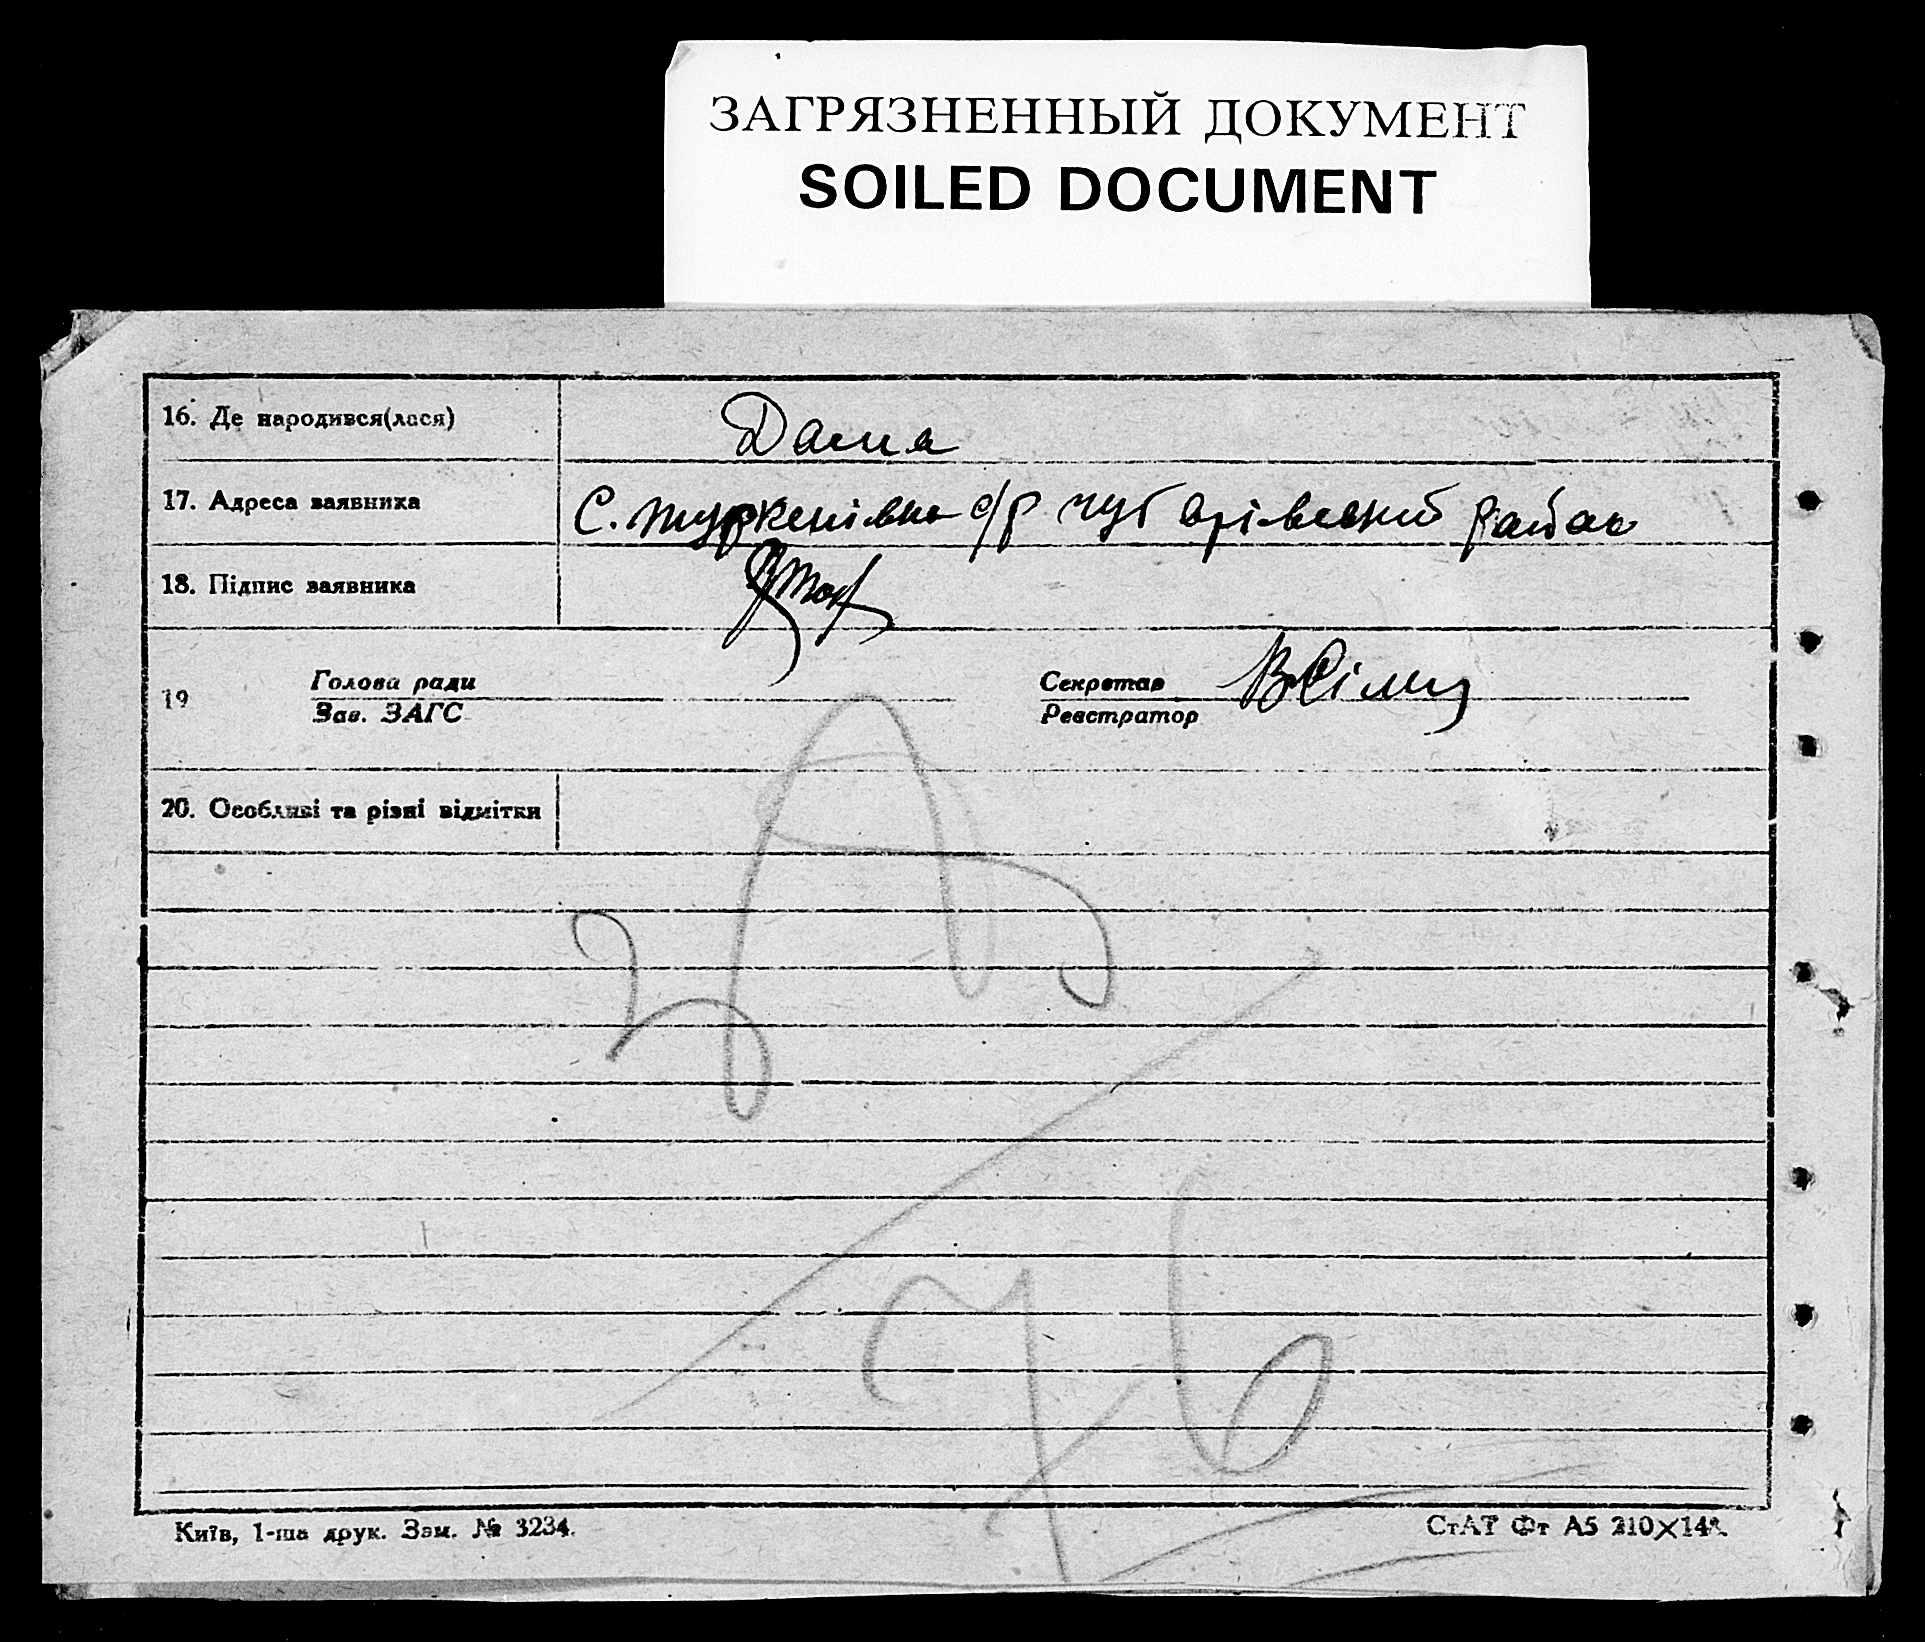 ЗАГРЯЗНЕННЫЙ ДОКУМЕНТ
SOILED DOCUMENT
16. Де народився(лася) Дома
17. Адреса заявника С. Туркенівка с/р Чубарівський район
18. Підпис заявника
19 Голова ради Секретар
Зав. ЗАГС Реєстратор
20. Особливі та різні відмітки
Київ, 1-ша друк. Зам. № 3234. СтАТ Фт А5 210×148.